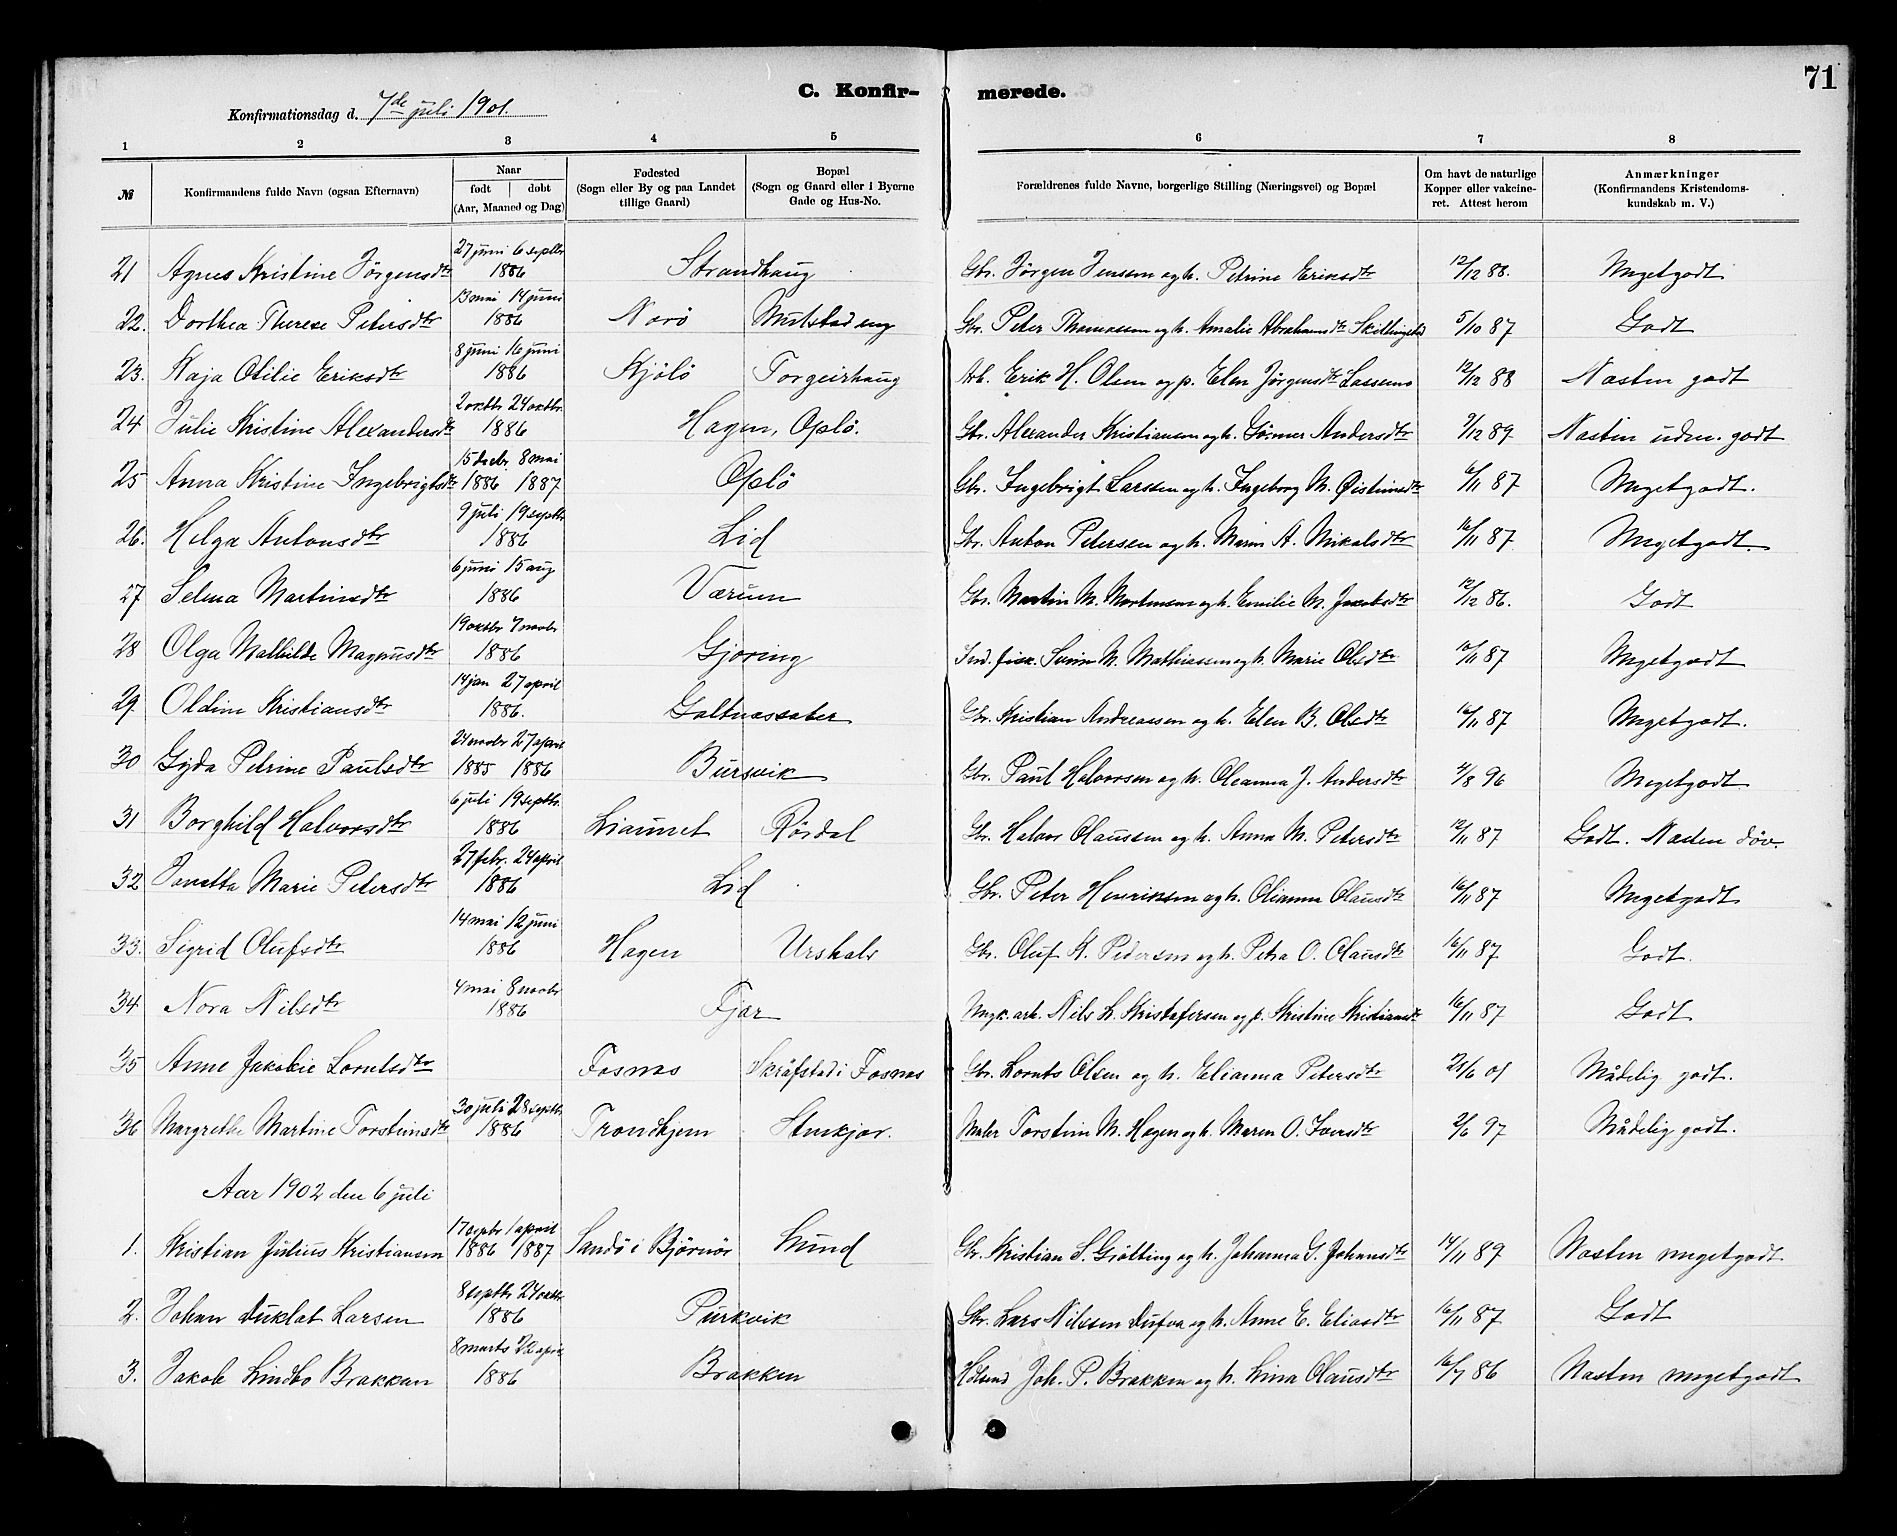 C. Konfir- merede.
71
Konfirmationsdag d. 7de juli 1901.
1 2 3 4 5 6 7 8
№ Konfirmandens fulde Navn (ogsaa Efternavn) Naar født døbt (Aar, Maaned og Dag) Fødested (Sogn eller By og paa Landet tillige Gaard) Bopæl (Sogn og Gaard eller i Byerne Gade og Hus-No. Forældrenes fulde Navne, borgerlige Stilling (Næringsvei) og Bopæl Om havt de naturlige Kopper eller vakcineret. Attest herom Anmærkninger (Konfirmandens Kristendomskundskab m. V.)
21 Agnes Kristine Jørgensdtr 27 juni 6 septbr 1886 Strandhaug Gbr. Jørgen Jenssen og h. Petrine Eriksdtr 12/12 88. Megetgodt
22. Dorthea Therese Petersdtr 13 mai 14 juni 1886 Nærö Gbr. Peter Thomassen og h. Amalie Abrahamsdtr 5/10 87 Godt
23. Kaja Otilie Eriksdtr 8 juni 16 juni 1886 Kjölö Torgeirhaug Arb. Erik H. Olsen og p. Elen Jørgensdtr Lassemo 12/12 88 Næsten godt
24 Julie Kristine Alexandersdtr 2 oktbr 24 oktbr. 1886 Hagen, Oplö. Gbr. Alexander Kristiansen og h. Andersdtr 9/12 89 Næsten udm. godt
25 Anna Kristine Ingebrigtsdtr 15 decbr 8 mai 1886 1887 Oplö Gbr. Ingebrigt Larssen og h. Ingeborg M. Øisteinsdtr 6/11 87 Megetgodt.
26. Helga Antonsdtr 9 juli 19 septbr 1886 Lid Gbr. Anton Petersen og h. Maren A. Mikalsdtr 16/11 87 Megetgodt.
27 Selma Martinsdtr 6 juni 15 aug 1886 Værum Gbr. Martin M. Mortensen og h. Emilie M. Jakobsdtr 12/12 86. Godt
28 Olga Mathilde Magnusdtr 19 oktbr 7 novbr 1886 Gjøring Ind. fisk. M. Mathiassen og h. Marie Olsdtr 10/11 87 Megetgodt
29. Oldine Kristiansdtr 14 jan 27 april 1886. Galtnæssæter Gbr. Kristian Andreassen og h. Elen B. Olsdtr 16/11 87 Megetgodt.
30 Gyda Petrine Paulsdtr 24 novbr 27 april 1885 1886 Bursvik Gbr. Paul Halvorsen og h. Oleanna J. Andersdtr 4/8 96 Megetgodt
31 Borghild Halvorsdtr 6 juli 19 septbr. 1886 Liaunet Rørdal Gbr. Halvor Olaussen og h. Anna M. Petersdtr 12/11 87 Godt. Næsten døv.
32 Jonetta Marie Petersdtr 27 febr. 24 april 1886 Lid Gbr. Peter Henriksen og h. Olianna Olausdtr 16/11 87 Megetgodt
33. Sigrid Olufsdtr 14 mai 12 juni 1886 Hagen Urshals Gbr. Oluf K. Pedersen og h. Petra O. Olausdtr 16/11 87 Godt.
34 Nora Nilsdtr 4 mai 8 novbr 1886 Fjær arb. Nils L. Kristofersen og p. Kristine Kristiansdtr 16/11 87 Godt
35 Anne Jakobie Lorntsdtr Fosnæs i Fosnæs Gbr. Lornts Olsen og h. Elianna Petersdtr 25/6 01 Mådelig godt.
36 Margrethe Martine Torsteinsdtr 30 juli 28 septbr 1886 Trondhjem Stenkjær. Maler Torstein M. Hagen og h. Maren O. Iversdtr 2/6 97 Mådelig godt.
Aar 1902 den 6 juli
1. Kristian Julius Kristiansen 1 april 1886 1887 Sandö i Björnör Sund Gbr. Kristian S. Grötting og h. Johanna G. Johansdtr 14/11 89 Næsten megetgodt
2. Johan Duklæt Larsen 8 septbr 24 oktbr. 1886 Purkvik Gbr. Lars Nilssen Dufva og h. Anne E. Eliasdtr 16/11 87 Godt
3. Jakob Lindbo Brakken 8 marts april 1886 Brakken Joh. P. Brakken og h. Lina Olausdtr 16/7 86 Næsten megetgodt